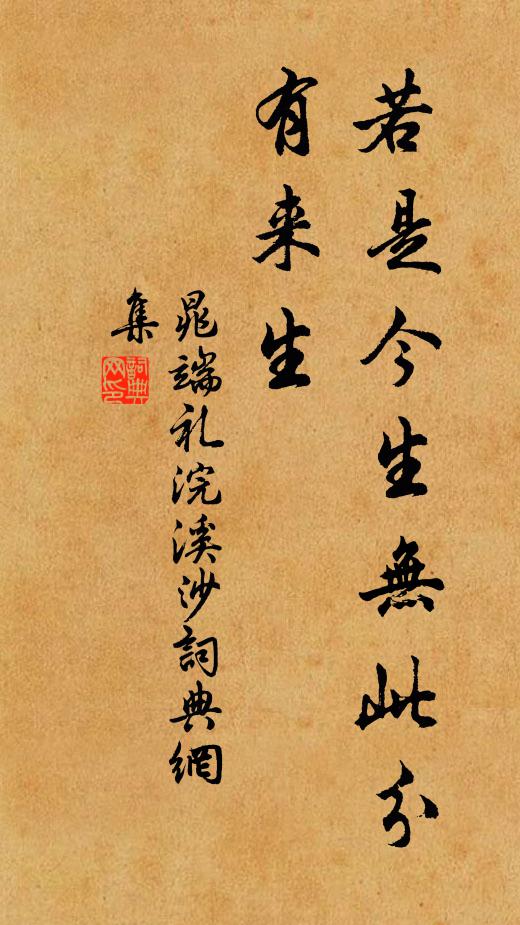 若是今生無此分
有来生
晁端礼浣溪沙詞典網
集
詞典
网印